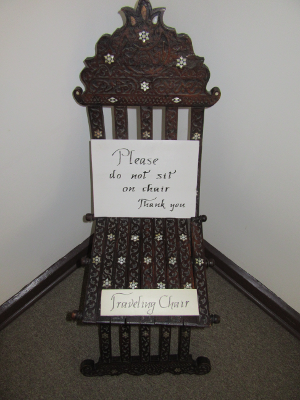 Please
do not sit
on chair
Thank you
Traveling Chair